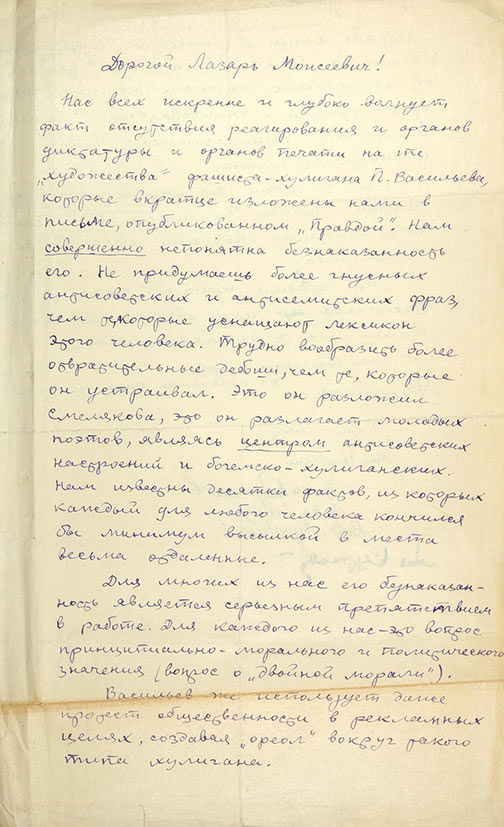 Дорогой Лазарь Моисеевич!
Нас всех искренне и глубоко волнует
факт отсутствия реагирования и органов
диктатуры и органов печати на те
„художества" фашиста-хулигана П. Васильева,
которые вкратце изложены нами в
письме, опубликованном „Правдой". Нам
совершенно непонятна безнаказанность
его. Не придумаешь более гнусных
антисоветских и антисемитских фраз,
чем те, которые уснащают лексикон
этого человека. Трудно вообразить более
отвратительные дебоши, чем те, которые
он устраивал. Это он разложил
Смелякова, это он разлагает молодых
поэтов, являясь центром антисоветских
настроений и богемско-хулиганских.
Нам известны десятки фактов, из которых
каждый для любого человека кончился
бы минимум высылкой в места
весьма отдаленные.
Для многих из нас его безнаказан-
ность является серьезным препятствием
в работе. Для каждого из нас - это вопрос
принципиально-морального и политического
значения (вопрос о „двойной морали").
Васильев же использует даже
протест общественности в рекламных
целях, создавая „ореол" вокруг такого
типа хулигана.